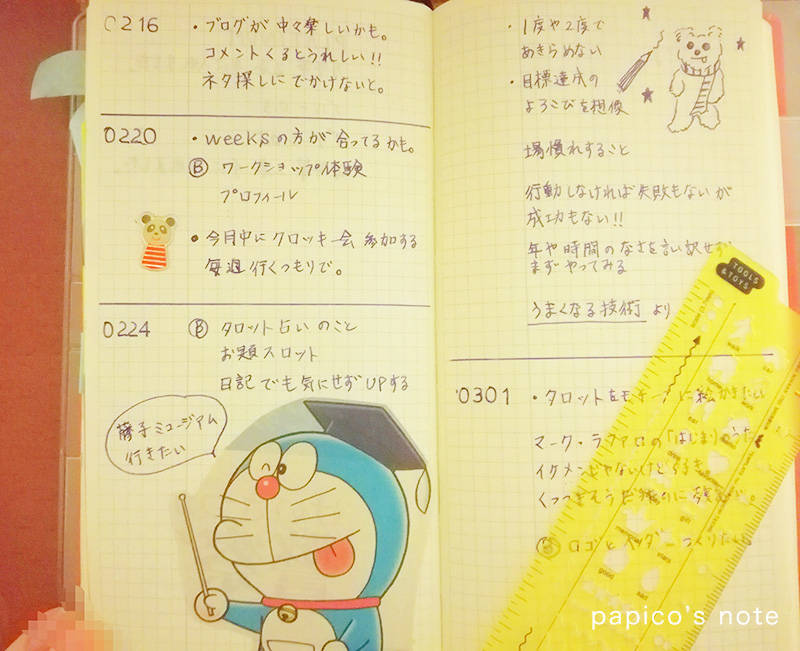 0216
・ブログが中々楽しいかも。
コメントくるとうれしい!!
ネタ探しにでかけないと。
0220
・weeksの方が合ってるかも。
Ⓑ ワークショップ体験
プロフィール
・今月中にクロッキー会参加する
毎週行くつもりで。
0224
Ⓑ タロット占いのこと
お題スロット
日記でも気にせずUPする
藤子ミュージアム
行きたい
・1度や2度で
あきらめない
・目標達成の
よろこびを想像
場慣れすること
行動しなければ失敗もないが
成功もない!!
年や時間のなさを言い訳せず
まずやってみる
うまくなる技術より
TOOLS
& TOYS
0301
・タロットをモチーフに絵かきたい
マーク・ラファロの「はじまりのうた」
イケメンじゃないけど
くっつきそうだ
Ⓑ ロゴとヘッダーつくりたい
papico's note